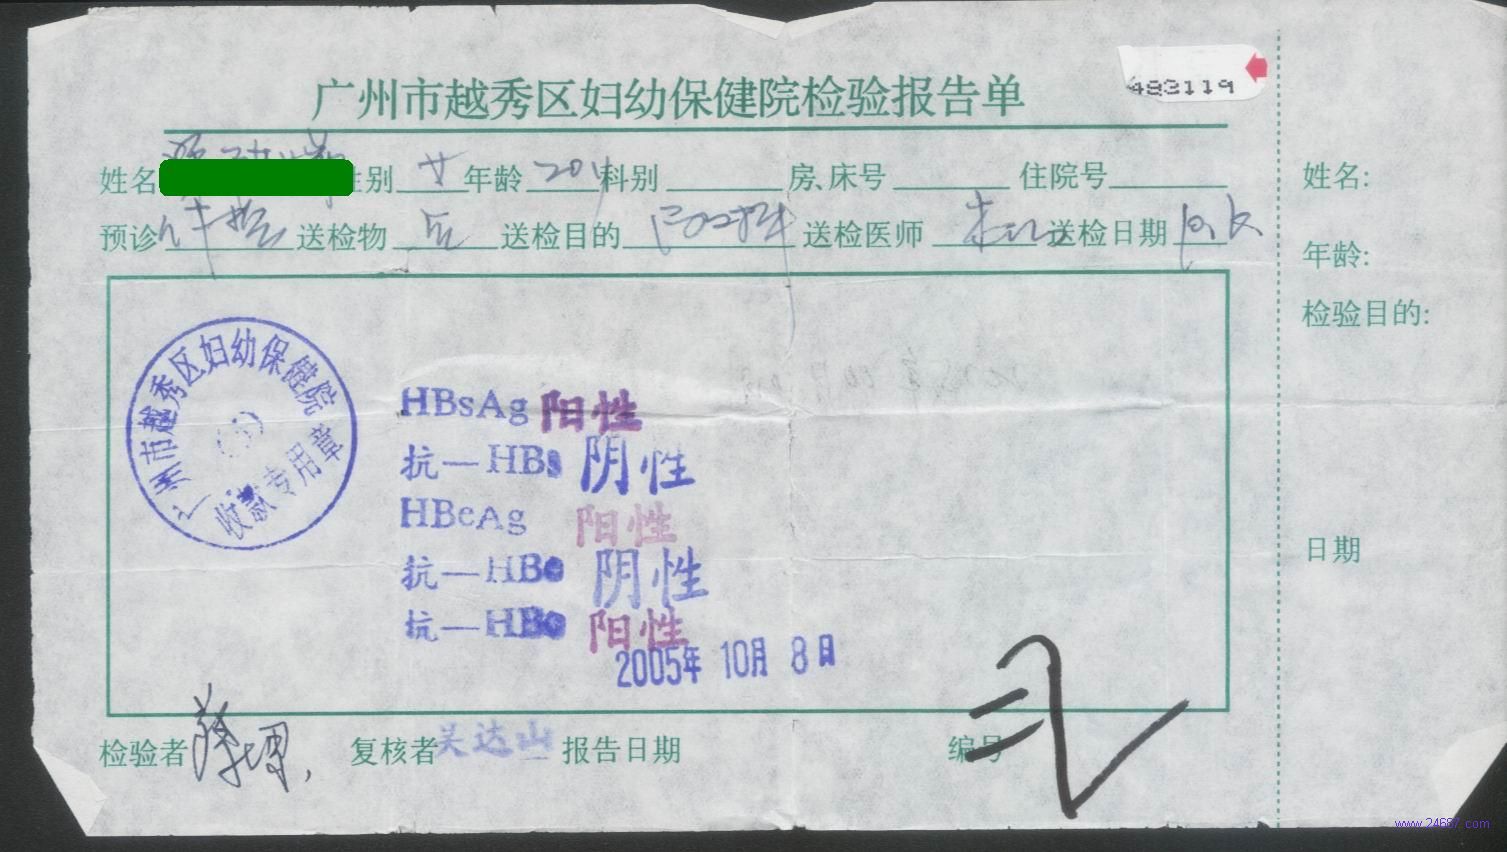 广州市越秀区妇幼保健院检验报告单
483119
姓名 性别 女 年龄 20 科别 房、床号 住院号
预诊 送检物 送检目的 送检医师 送检日期
广州市越秀区妇幼保健院
收款专用章
HBsAg 阳性
抗—HBs 阴性
HBeAg 阳性
抗—HBe 阴性
抗—HBc 阳性
2005年 10月 8日
检验者 复核者 吴达山 报告日期 编号
姓名:
年龄:
检验目的:
日期
www.24687.com